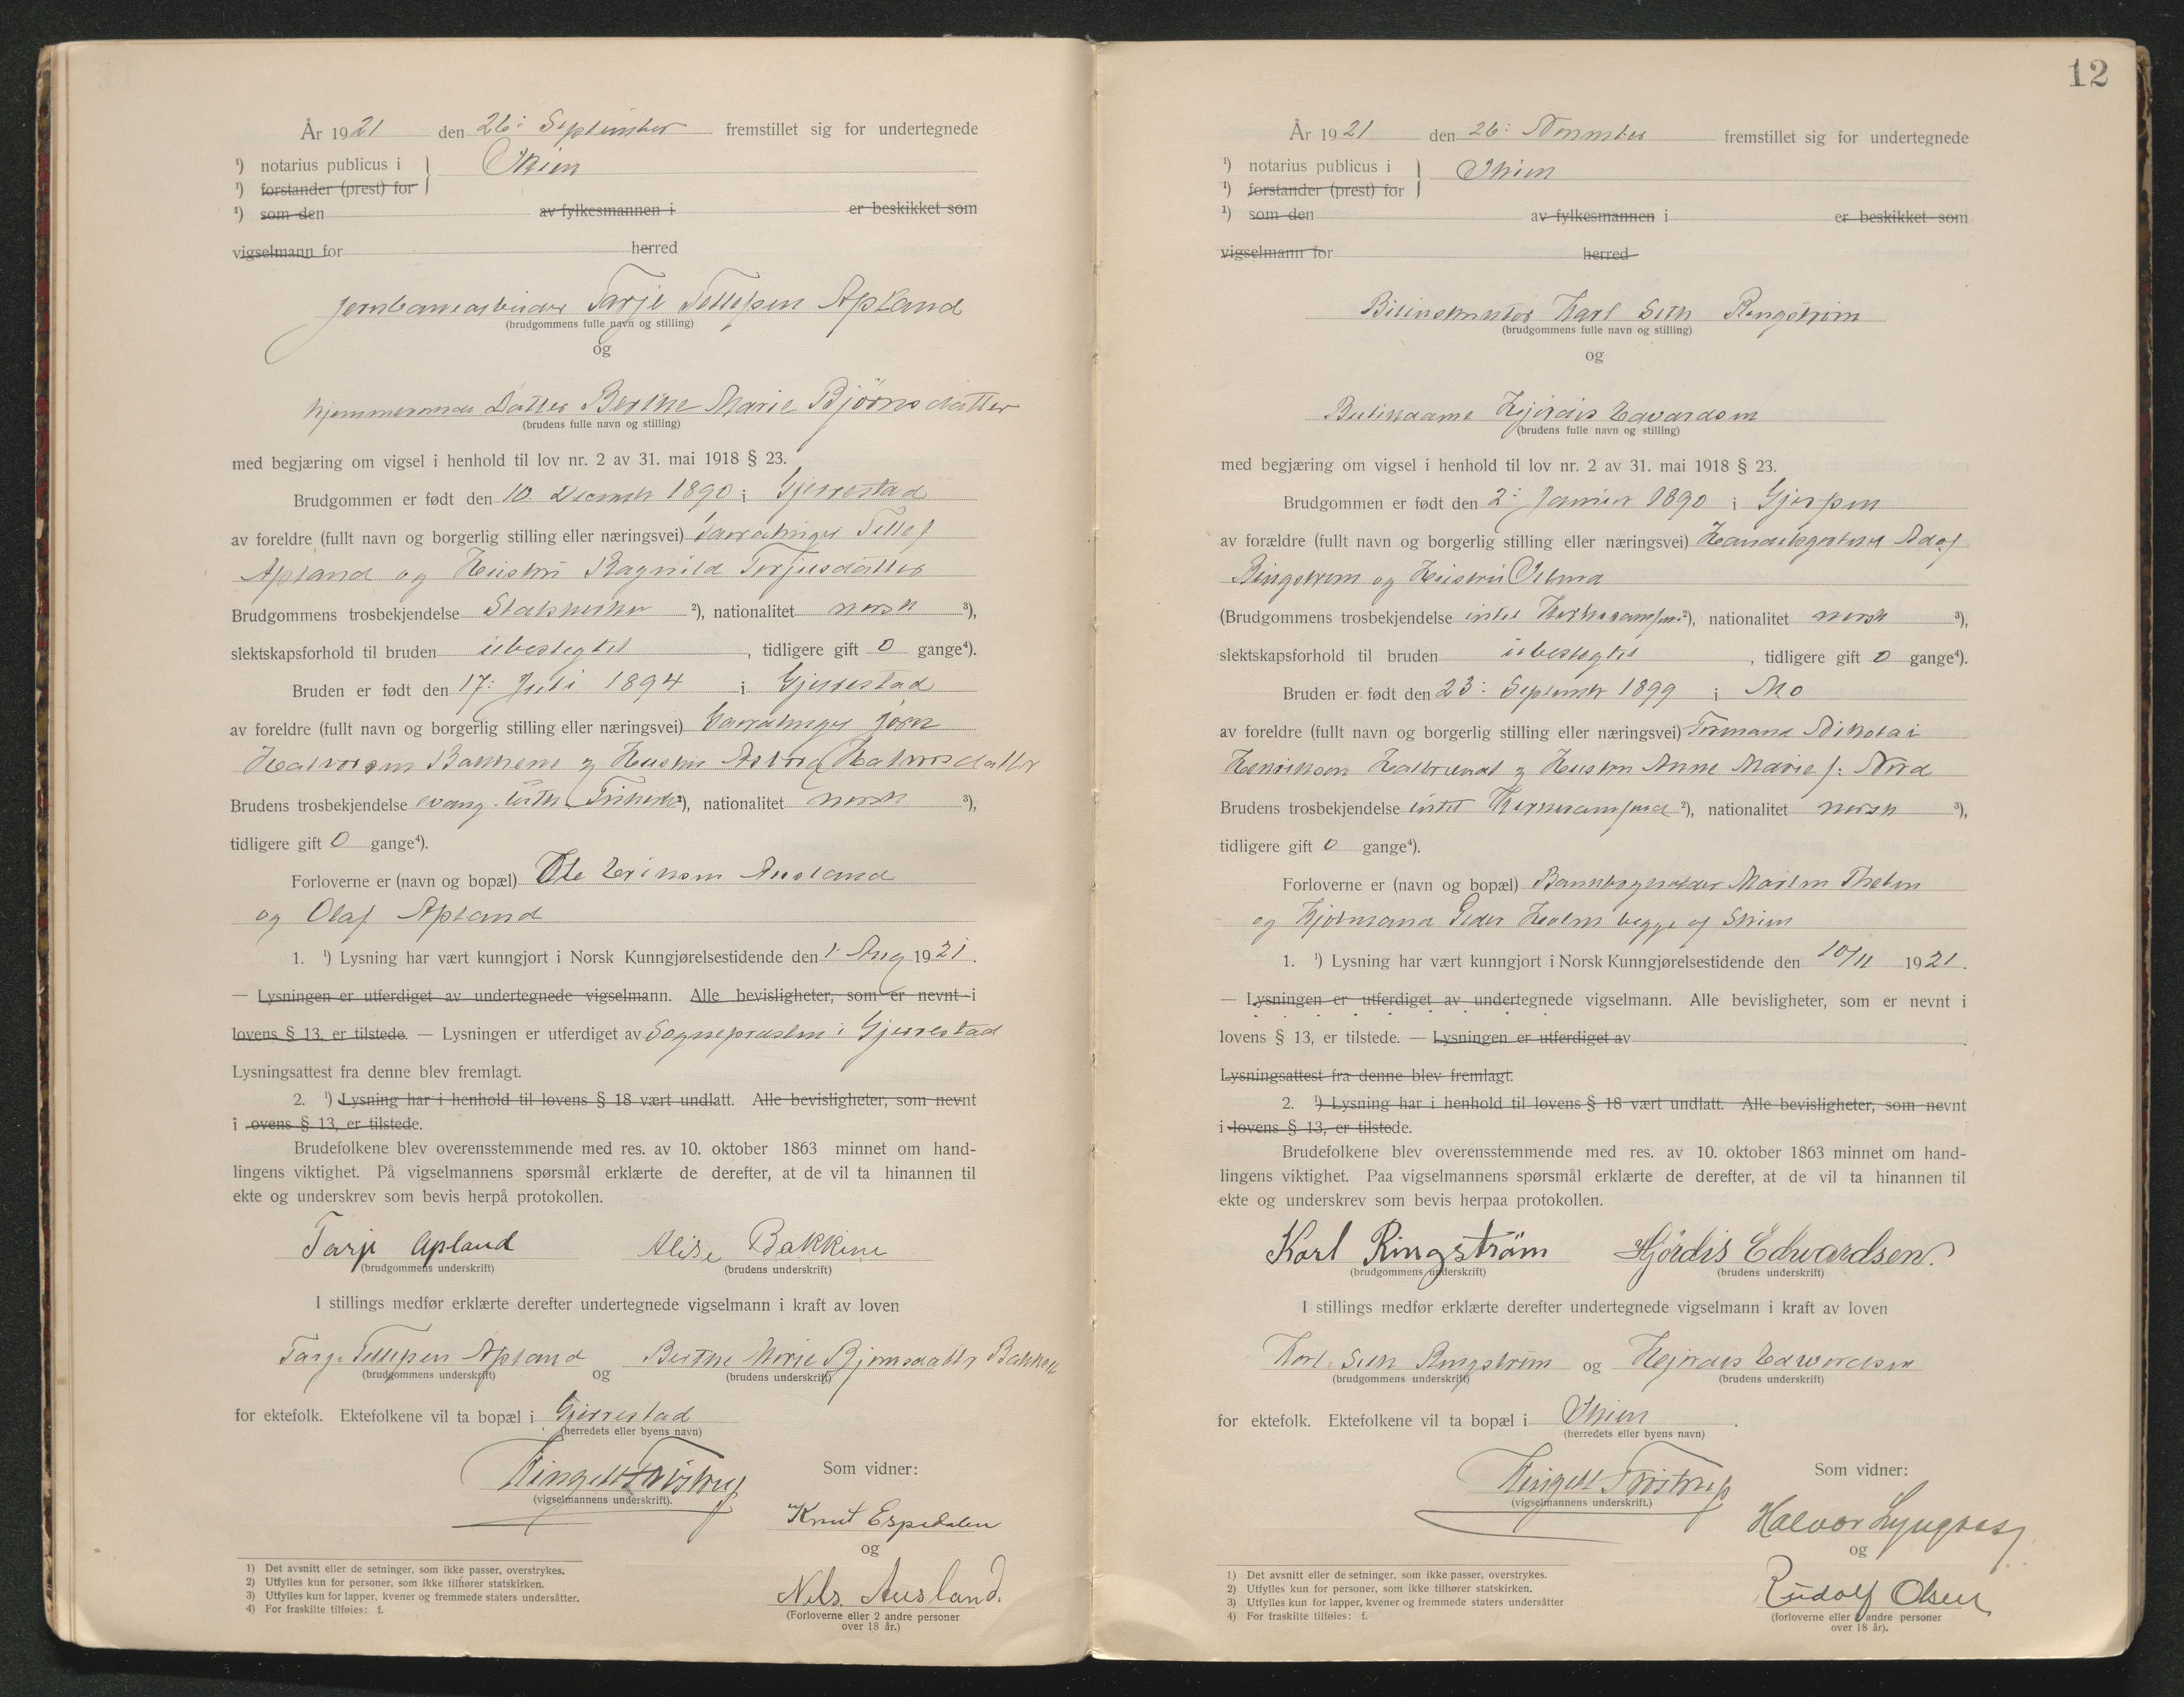 År 1921 den 26: September fremstillet sig for undertegnede
¹) notarius publicus i Skien
¹) forstander (prest) for
¹) som den av fylkesmannen i er beskikket som
vigselmann for herred
Jernbanearbeider Tarje Tellefsen Apland
(brudgommens fulle navn og stilling)
og
hjemmeværende Datter Berthe Marie Bjørnsdatter
(brudens fulle navn og stilling)
med begjæring om vigsel i henhold til lov nr. 2 av 31. mai 1918 § 23.
Brudgommen er født den 10. Decembr 1890 i Gjerrestad
av foreldre (fullt navn og borgerlig stilling eller næringsvei) Gaardbruger Tellef
Apland og Hustru Ragnild Terjusdatter
Brudgommens trosbekjendelse Statskirken ²), nationalitet norsk ³),
slektskapsforhold til bruden ubeslegtet , tidligere gift 0 gange⁴).
Bruden er født den 17: Juli 1894 i Gjerrestad
av foreldre (fullt navn og borgerlig stilling eller næringsvei) Gaardbruger Jørn
Halvorsen Bakkene og Hustru Astrid Halvorsdatter
Brudens trosbekjendelse evang. luth. Frikirke ²), nationalitet norsk ³),
tidligere gift 0 gange⁴).
Forloverne er (navn og bopæl) Ole Eriksen Ausland
og Olaf Apland
1. ¹) Lysning har vært kunngjort i Norsk Kunngjørelsestidende den 1. Aug 1921.
— Lysningen er utferdiget av undertegnede vigselmann. Alle bevisligheter, som er nevnt i
lovens § 13, er tilstede. — Lysningen er utferdiget av Sognepresten i Gjerrestad
Lysningsattest fra denne blev fremlagt.
2. ¹) Lysning har i henhold til lovens § 18 vært undlatt. Alle bevisligheter, som nevnt
i lovens § 13, er tilstede.
Brudefolkene blev overensstemmende med res. av 10. oktober 1863 minnet om hand-
lingens viktighet. På vigselmannens spørsmål erklærte de derefter, at de vil ta hinannen til
ekte og underskrev som bevis herpå protokollen.
Tarje Apland Alise Bakkene
(brudgommens underskrift) (brudens underskrift)
I stillings medfør erklærte derefter undertegnede vigselmann i kraft av loven
Tarje Tellefsen Apland og Berthe Marie Bjørnsdatter Bakken
(brudgommens underskrift) (brudens underskrift)
for ektefolk. Ektefolkene vil ta bopæl i Gjerrestad
(herredets eller byens navn)
Trøstrup
(vigselmannens underskrift).
Som vidner:
Knut Espedalen
og
Nils Ausland.
(Forloverne eller 2 andre personer
over 18 år.)
1) Det avsnitt eller de setninger, som ikke passer, overstrykes.
2) Utfylles kun for personer, som ikke tilhører statskirken.
3) Utfylles kun for lapper, kvener og fremmede staters undersåtter.
4) For fraskilte tilføies: f.
12
År 1921 den 26: November fremstillet sig for undertegnede
¹) notarius publicus i Skien
¹) forstander (prest) for
¹) som den av fylkesmannen i er beskikket som
vigselmann for herred
Karl Seth Ringstrøm
(brudgommens fulle navn og stilling)
og
Butikdame Hjørdis Edvardsen
(brudens fulle navn og stilling)
med begjæring om vigsel i henhold til lov nr. 2 av 31. mai 1918 § 23.
Brudgommen er født den 2: Januar 1890 i Gjerpen
av forældre (fullt navn og borgerlig stilling eller næringsvei) Handelsgartner Adolf
Ringstrøm og Hustru
(Brudgommens trosbekjendelse intet Kirkesamfund ²), nationalitet norsk ³),
slektskapsforhold til bruden ubeslegtet , tidligere gift 0 gange⁴).
Bruden er født den 23: Septembr 1899 i Mo
av foreldre (fullt navn og borgerlig stilling eller næringsvei) Formand Nikolai
Henriksen og Hustru Anne Marie f: Nord
Brudens trosbekjendelse intet Kirkesamfund ²), nationalitet norsk ³),
tidligere gift 0 gange⁴).
Forloverne er (navn og bopæl) Martin
og Peder Holm begge af Skien
1. ¹) Lysning har vært kunngjort i Norsk Kunngjørelsestidende den 10/11 1921.
— Lysningen er utferdiget av undertegnede vigselmann. Alle bevisligheter, som er nevnt i
lovens § 13, er tilstede. — Lysningen er utferdiget av
Lysningsattest fra denne blev fremlagt.
2. ¹) Lysning har i henhold til lovens § 18 vært undlatt. Alle bevisligheter, som nevnt
i lovens § 13, er tilstede.
Brudefolkene blev overensstemmende med res. av 10. oktober 1863 minnet om hand-
lingens viktighet. Paa vigselmannens spørsmål erklærte de derefter, at de vil ta hinannen til
ekte og underskrev som bevis herpaa protokollen.
Karl Ringström Hjördis Edwardsen.
(brudgommens underskrift) (brudens underskrift)
I stillings medfør erklærte derefter undertegnede vigselmann i kraft av loven
Karl Seth Ringstrøm og Hjørdis Edwardsen
(brudgommens underskrift) (brudens underskrift)
for ektefolk. Ektefolkene vil ta bopæl i Skien .
(herredets eller byens navn)
Trøstrup
(vigselmannens underskrift.)
Som vidner:
Halvor
og
Rudolf Olsen
(forloverne eller 2 andre personer
over 18 år).
1) Det avsnitt eller de setninger, som ikke passer, overstrykes.
2) Utfylles kun for personer, som ikke tilhører statskirken.
3) Utfylles kun for lapper, kvener og fremmede staters undersåtter
4) For fraskilte tilføies: f.